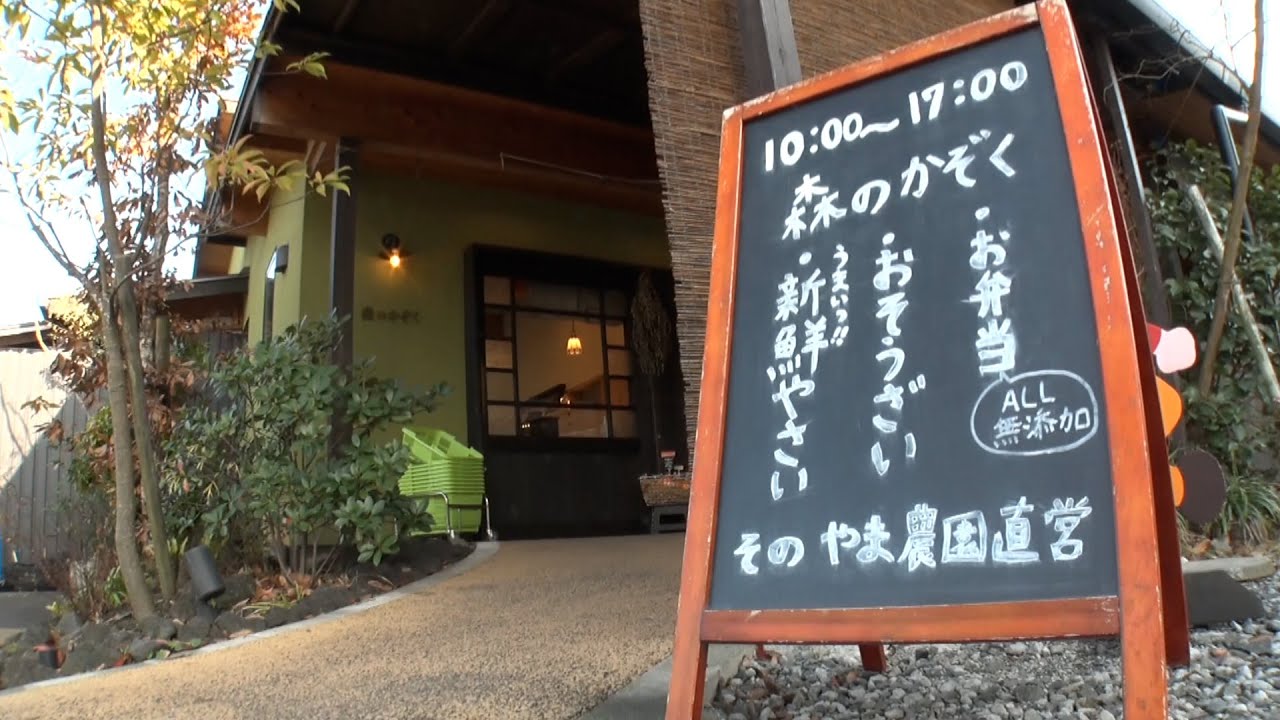 10:00～17:00
森のかぞく
・お弁当
ALL
無添加
・おそうざい
うまいっ!!
・新鮮やさい
そのやま農園直営
森のかぞく